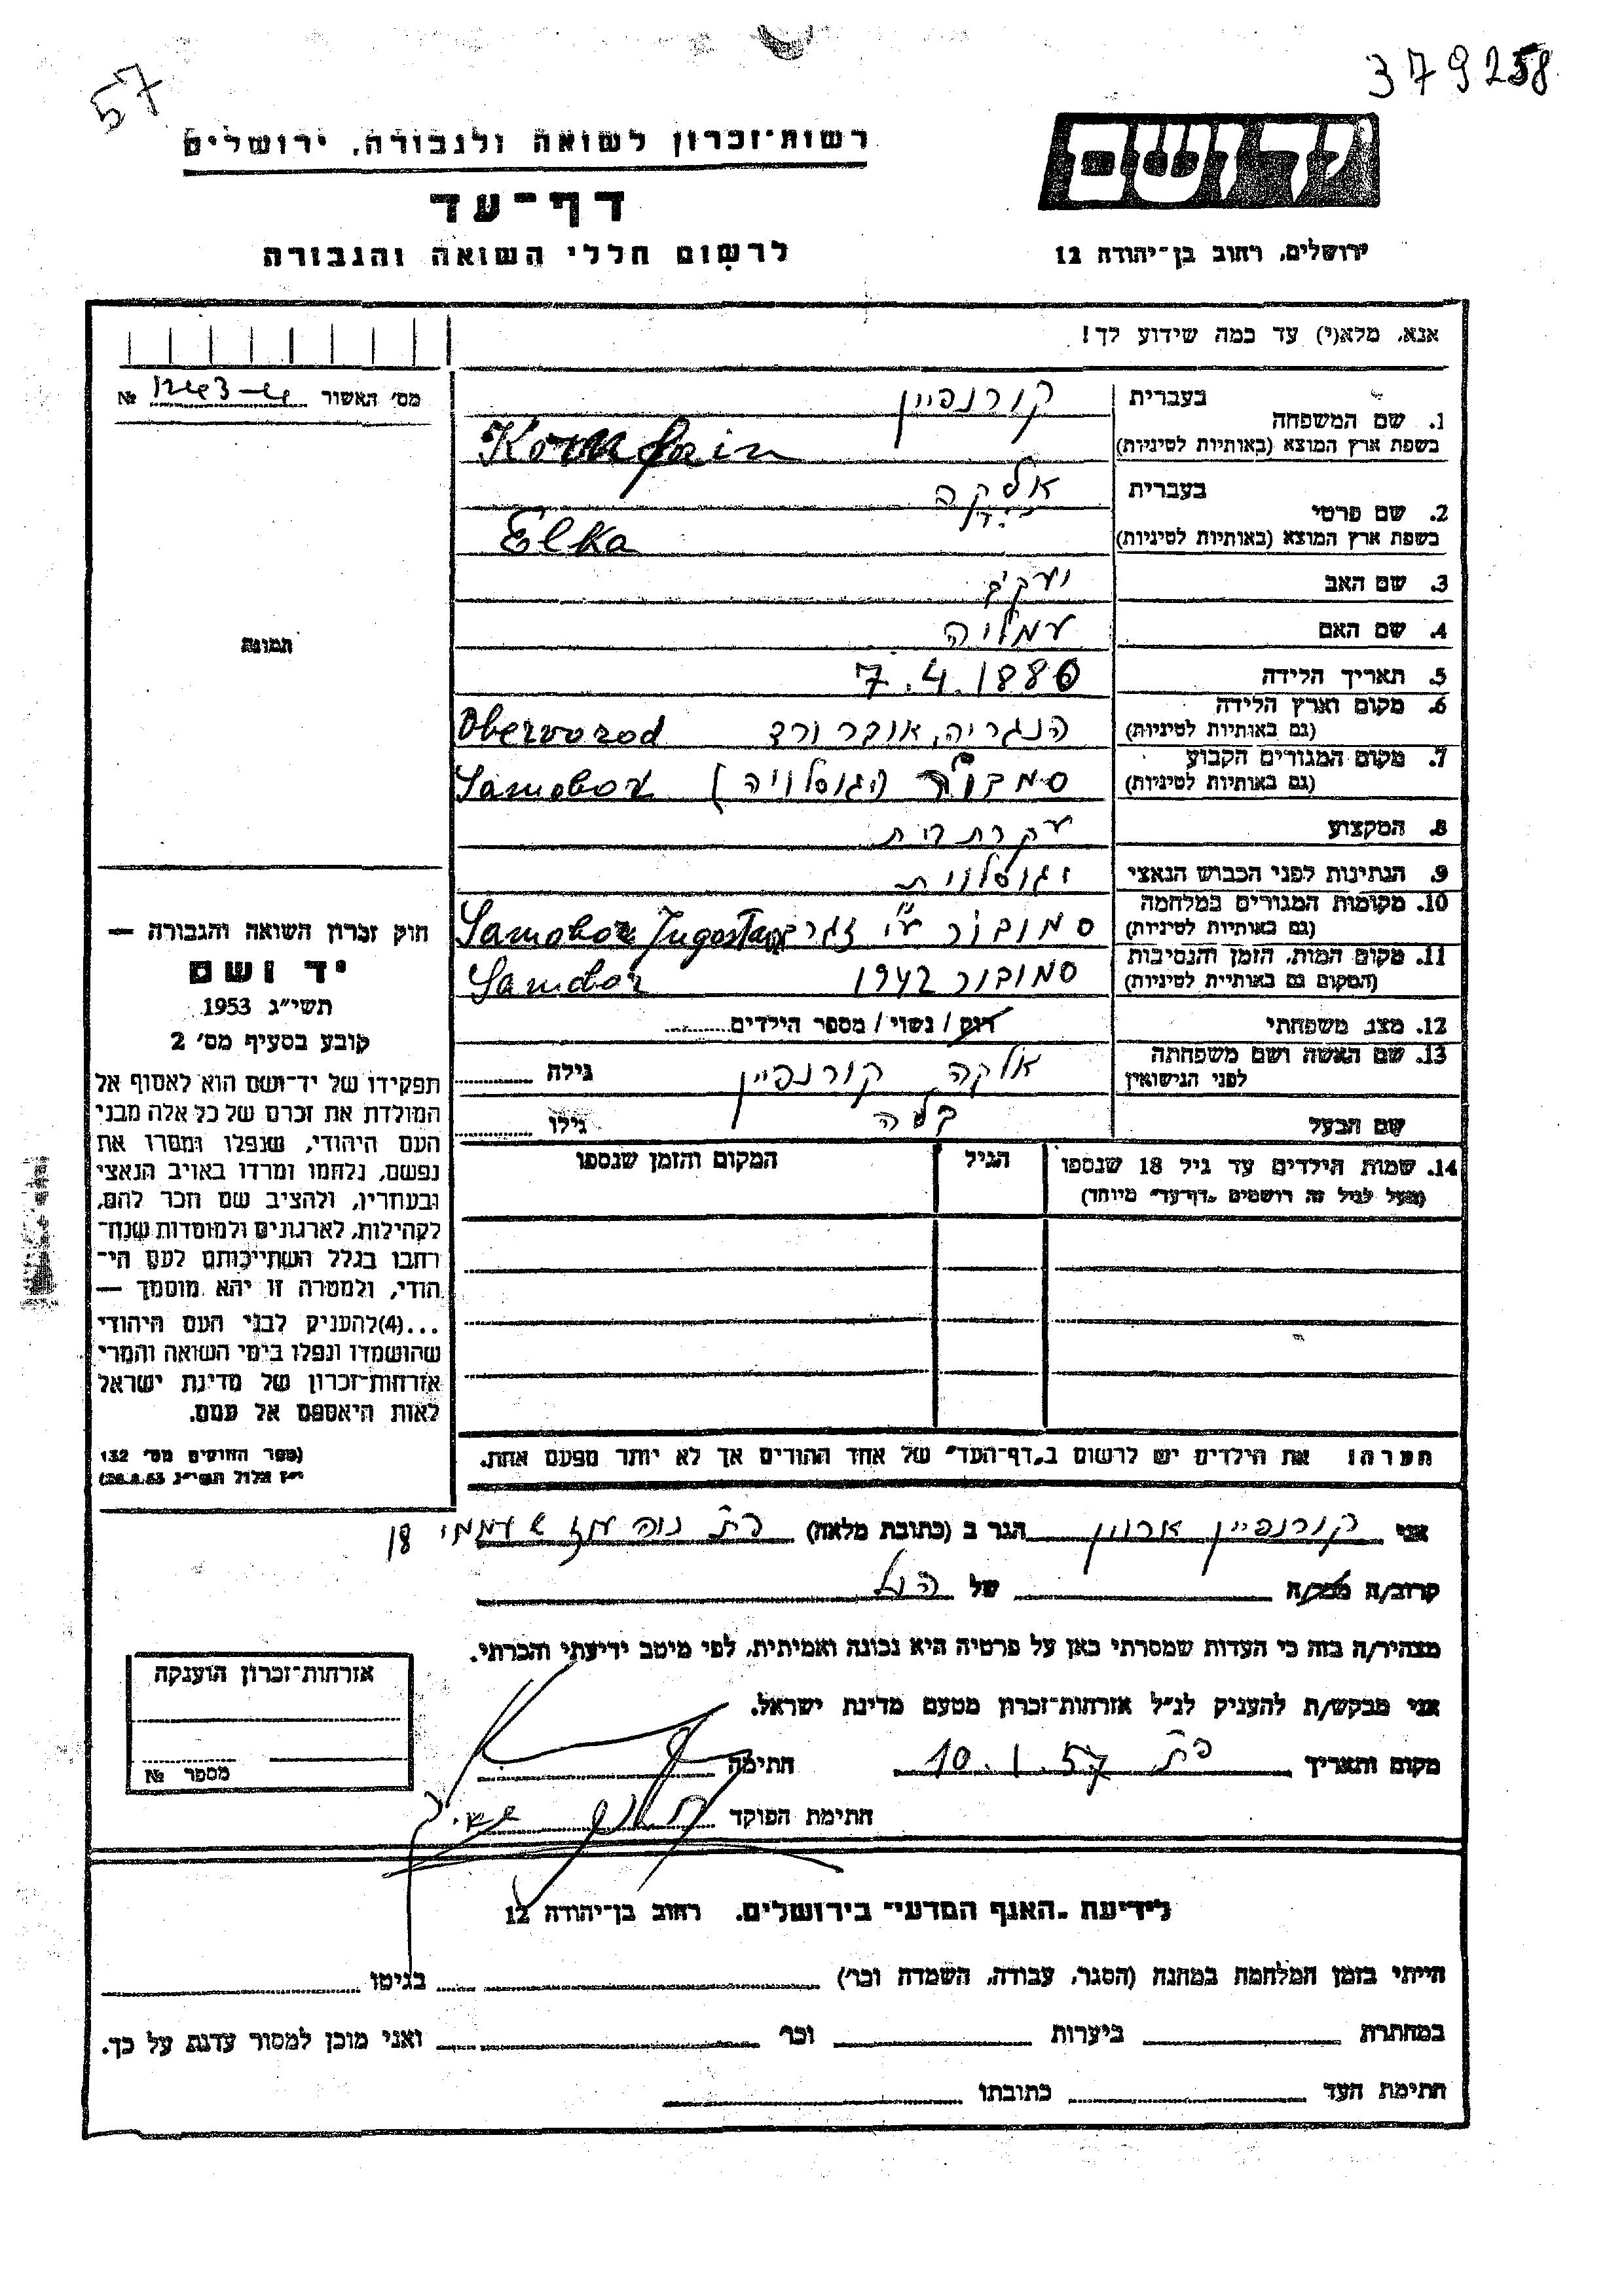 57
379258
רשות־זכרון לשואה ולגבורה, ירושלים
יד ושם
דף־עד
לרשום חללי השואה והגבורה
ירושלים, רחוב בן־יהודה 12
אנא, מלא(י) עד כמה שידוע לך!
מס׳ האשור №
1. שם המשפחה
בעברית קורנפיין
בשפת ארץ המוצא (באותיות לטיניות) Kornfein
2. שם פרטי
בעברית אלקה
בשפת ארץ המוצא (באותיות לטיניות) Elka
3. שם האב יעקב
4. שם האם עמליה
5. תאריך הלידה 7.4.1886
6. מקום וארץ הלידה
(גם באותיות לטיניות) הנגריה, אובר ורד Obervorod
7. מקום המגורים הקבוע
(גם באותיות לטיניות) סמבור (יגוסלויה) Samobor
8. המקצוע עקרת בית
9. הנתינות לפני הכבוש הנאצי יגוסלוית
10. מקומות המגורים במלחמה
(גם באותיות לטיניות) סמובור ע״י זגרב Samobor
11. מקום המות, הזמן והנסיבות
(המקום גם באותיות לטיניות) סמובור 1942 Samobor
12. מצב משפחתי רוק / נשוי / מספר הילדים
13. שם האשה ושם משפחתה
לפני הנישואין אלקה קורנפיין גילה
שם הבעל גילו
14. שמות הילדים עד גיל 18 שנספו
(מעל לגיל זה רושמים "דף־עד" מיוחד)
הגיל
המקום והזמן שנספו
הערה: את הילדים יש לרשום ב"דף־העד" של אחד ההורים אך לא יותר מפעם אחת.
תמונה
חוק זכרון השואה והגבורה —
יד ושם
תשי״ג 1953
קובע בסעיף מס׳ 2
תפקידו של יד־ושם הוא לאסוף אל
המולדת את זכרם של כל אלה מבני
העם היהודי, שנפלו ומסרו את
נפשם, נלחמו ומרדו באויב הנאצי
ובעוזריו, ולהציב שם וזכר להם,
לקהילות, לארגונים ולמוסדות שנח־
רבו בגלל השתייכותם לעם הי־
הודי, ולמטרה זו יהא מוסמך —
...(4) להעניק לבני העם היהודי
שהושמדו ונפלו בימי השואה והמרי
אזרחות־זכרון של מדינת ישראל
לאות היאספם אל עמם.
(ספר החוקים מס׳ 132
י״ז אלול תשי״ג 28.8.53)
אני קורנפיין ארווין הגר ב (כתובת מלאה) פ״ת נוה עוז 18
קרוב/ה מכר/ה של
מצהיר/ה בזה כי העדות שמסרתי כאן על פרטיה היא נכונה ואמיתית, לפי מיטב ידיעתי והכרתי.
אני מבקש/ת להעניק לנ״ל אזרחות־זכרון מטעם מדינת ישראל.
מקום ותאריך פ״ת 10.1.57 חתימה
חתימת הפוקד
אזרחות־זכרון הוענקה
מספר №
לידיעת "האגף המדעי" בירושלים, רחוב בן־יהודה 12
הייתי בזמן המלחמה במחנה (הסגר, עבודה, השמדה וכו׳) בגיטו
במחתרת ביערות וכו׳ ואני מוכן למסור עדות על כך.
חתימת העד כתובתו